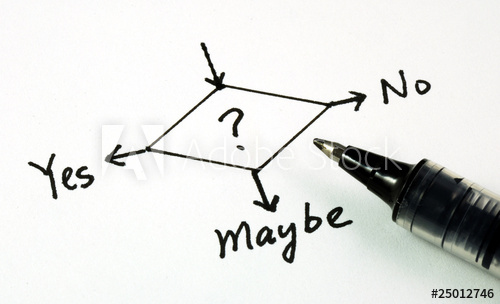 No
?
Yes
Maybe
Adobe Stock
#25012746